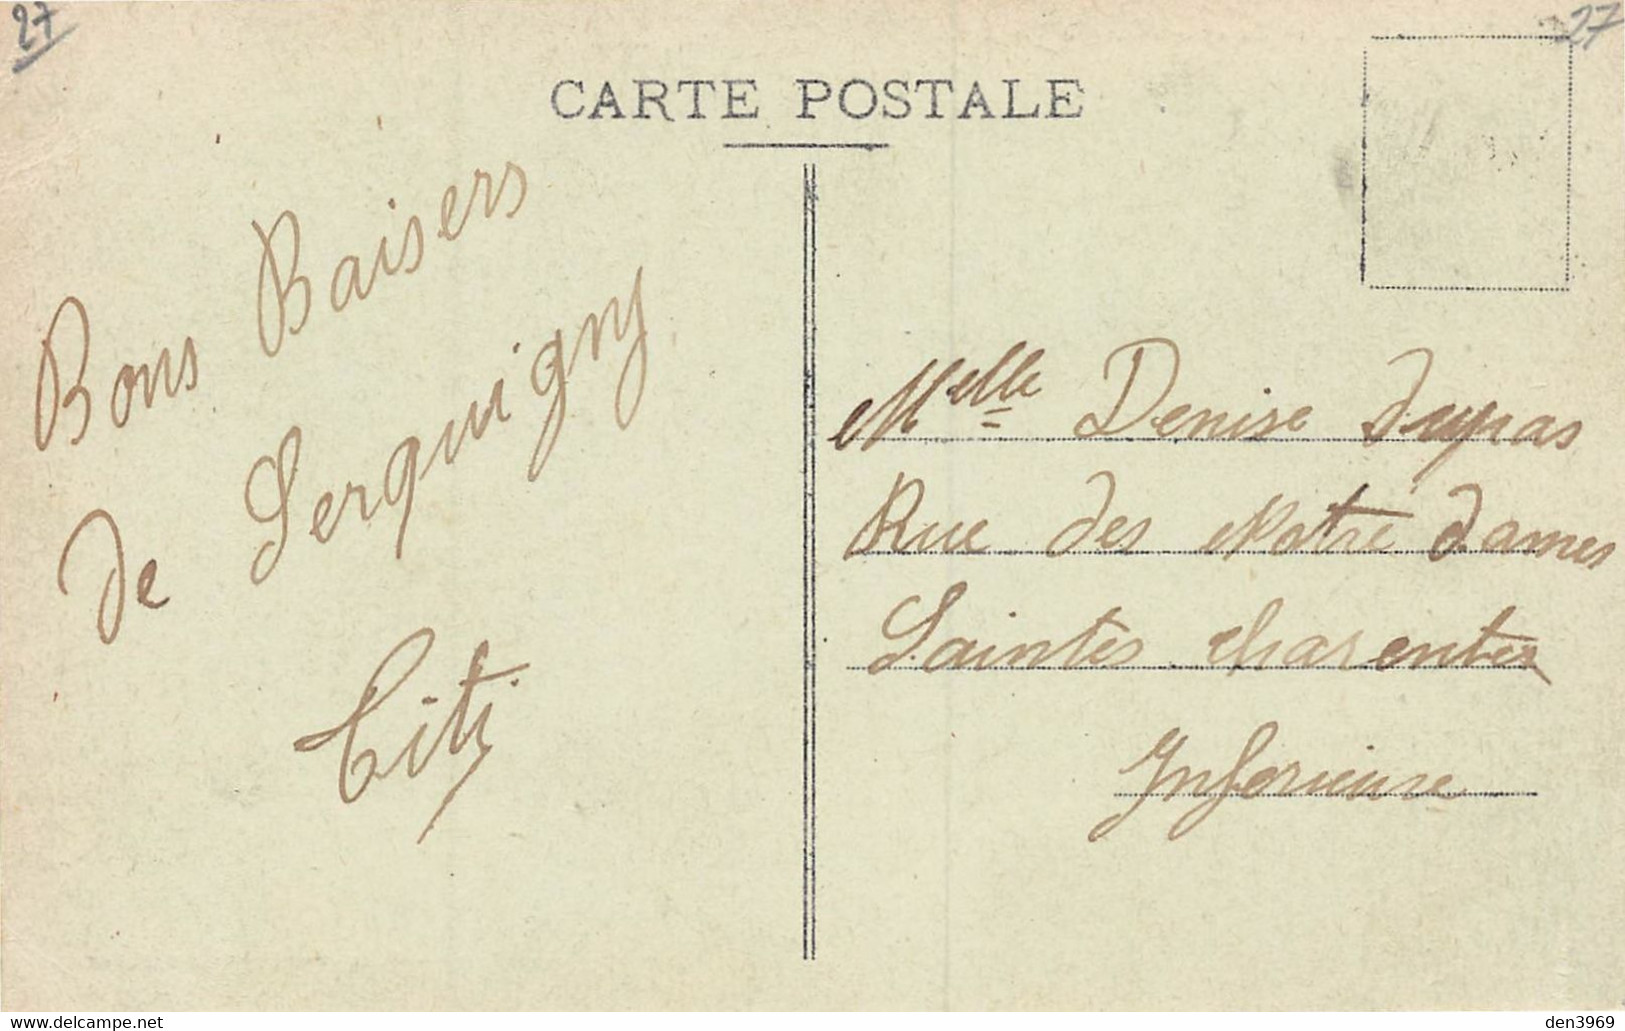 27
27
CARTE POSTALE
Bons Baisers
de Serquigny
Titi
Melle Denise Dupas
Rue des Notre Dames
Saintes Charente
Inferieure
www.delcampe.net
den3969